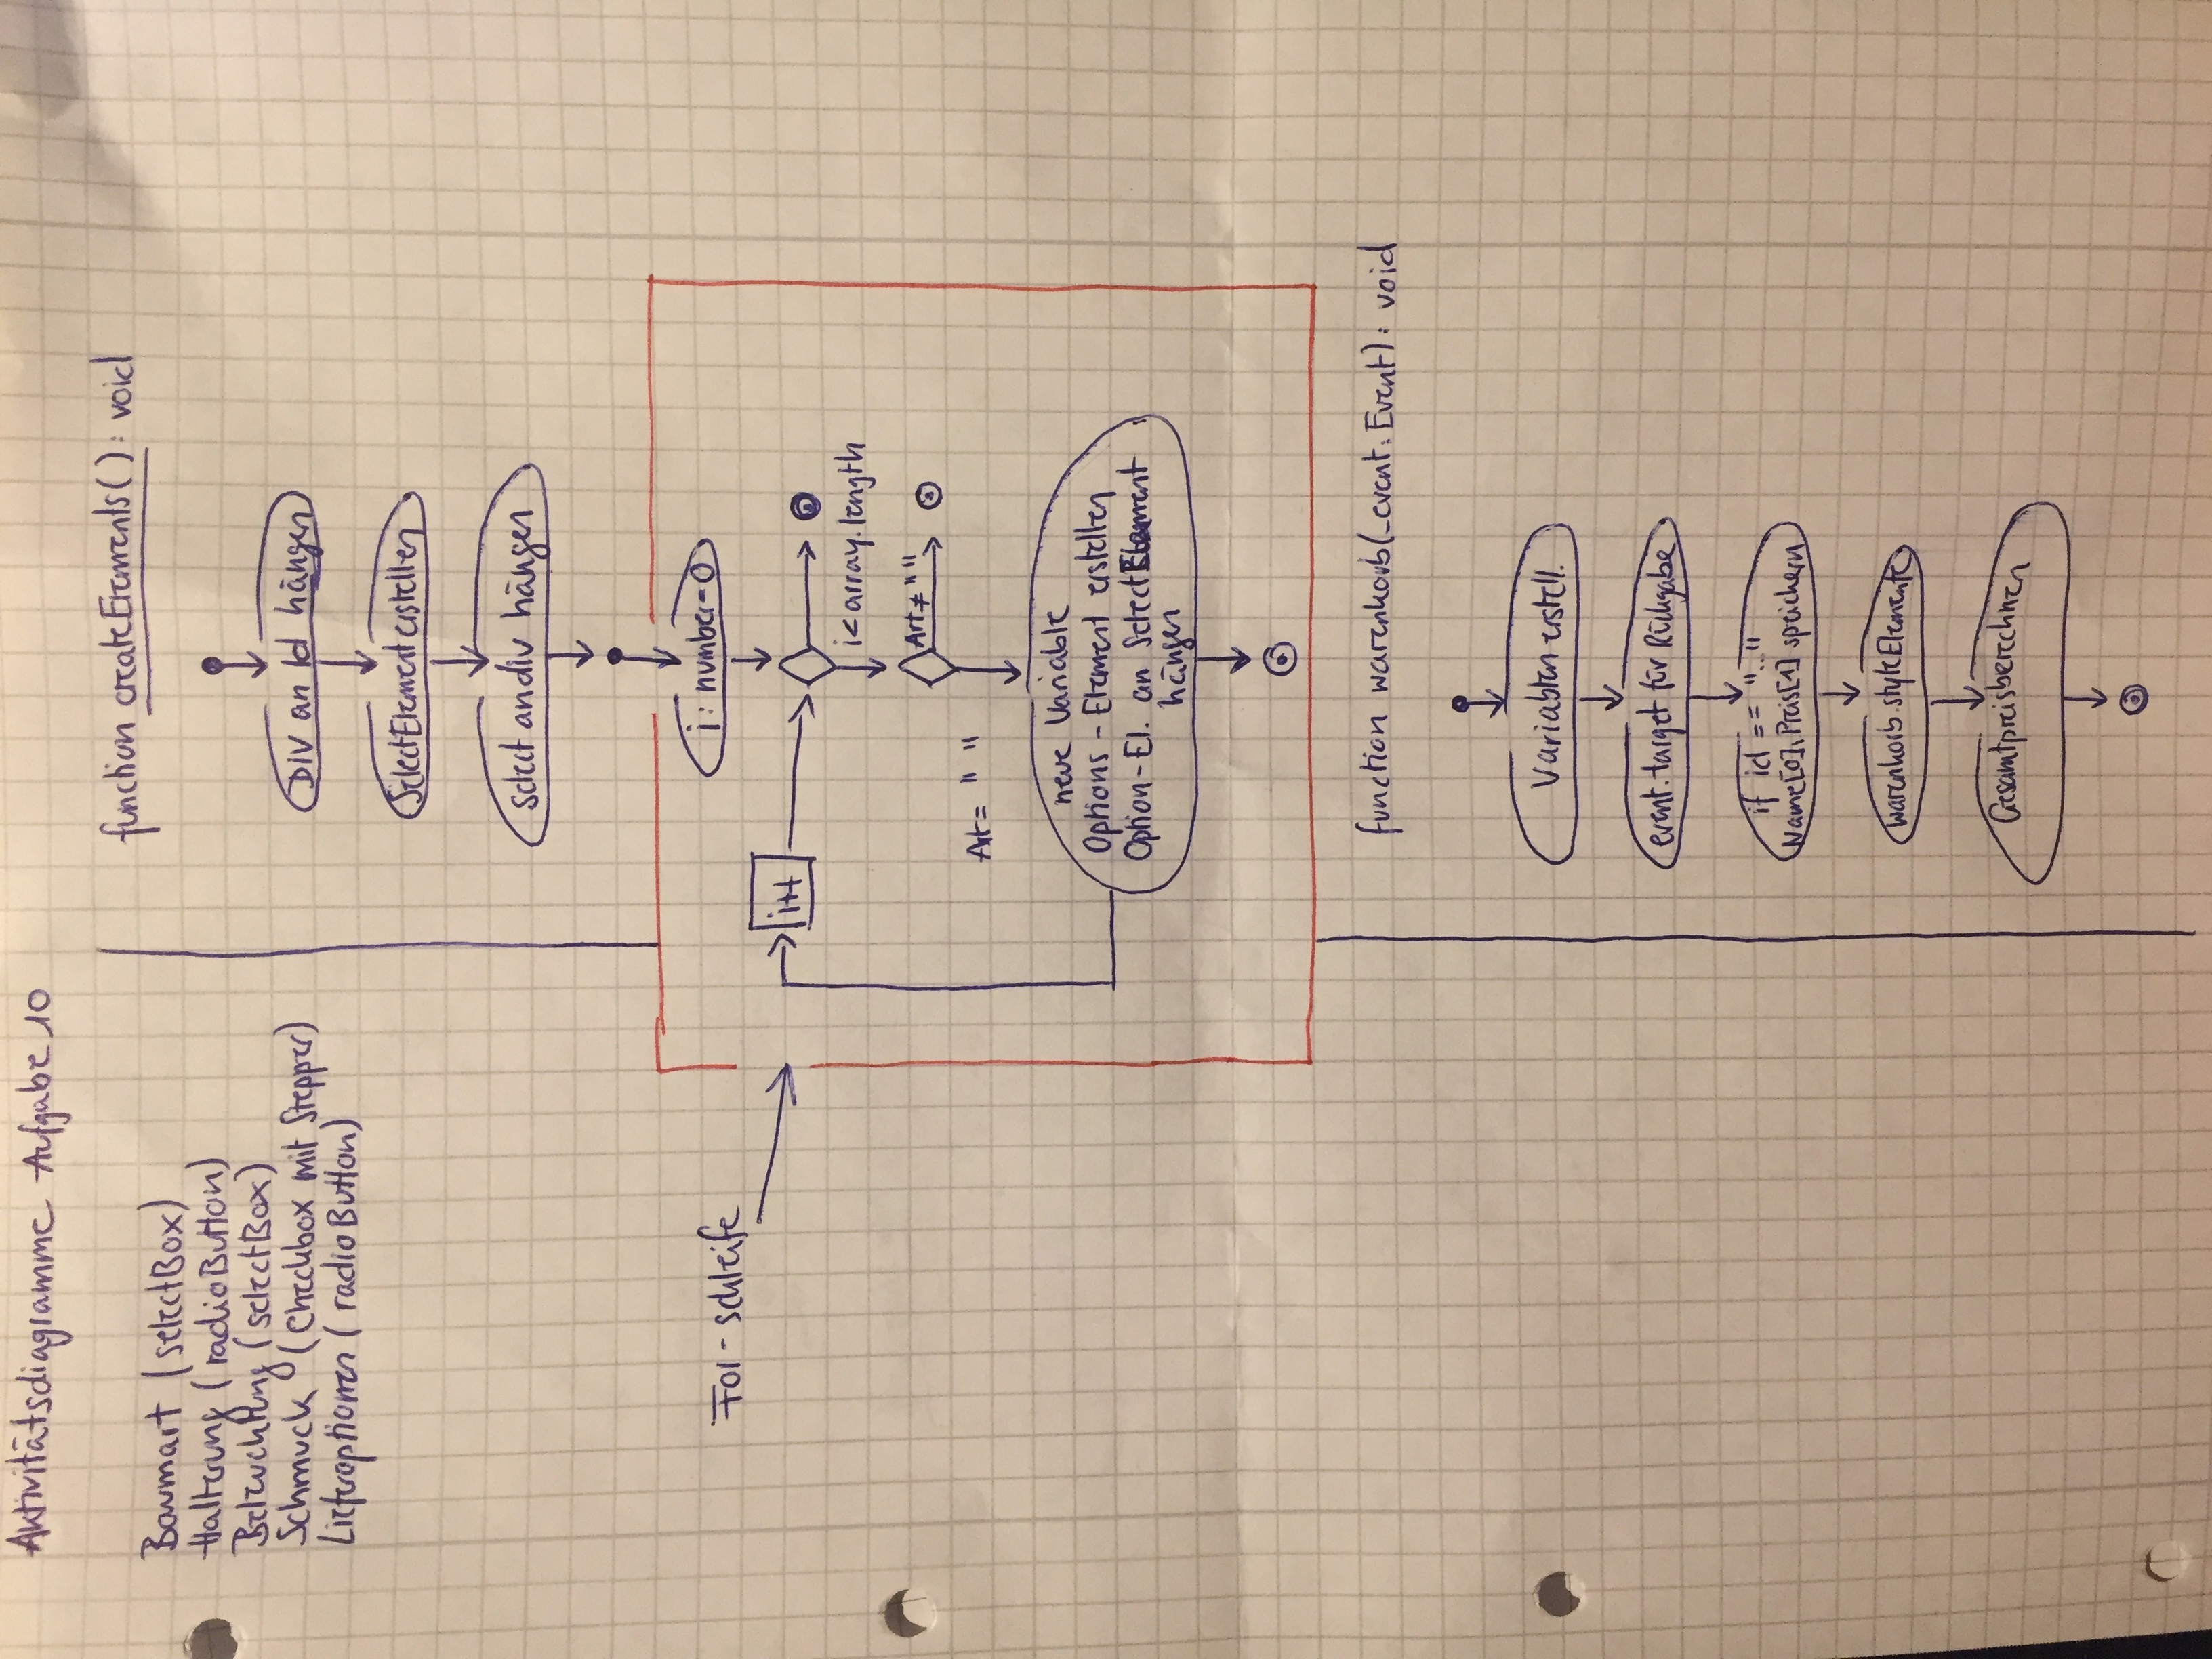 Aktivitätsdiagramme Aufgabe 10
Baumart (selectBox)
Halterung (radioButton)
Beleuchtung (selectBox)
Schmuck (Checkbox mit Stepper)
Lieferoptionen (radioButton)
function createElements(): void
Div an Id hängen
SelectElement erstellen
Select an div hängen
For-schleife
i: number=0
i++
i< array.length
Art ≠ " "
Art= " "
neue Variable
Options-Element erstellen
Option-El. an SelectElement
hängen
function warenkorb(_event: Event): void
Variablen erstell.
event.target für Rückgabe
if id == "..."
Name[0], Preis[1] speichern
warenkorb.styleElemente
Gesamtpreisberechnen